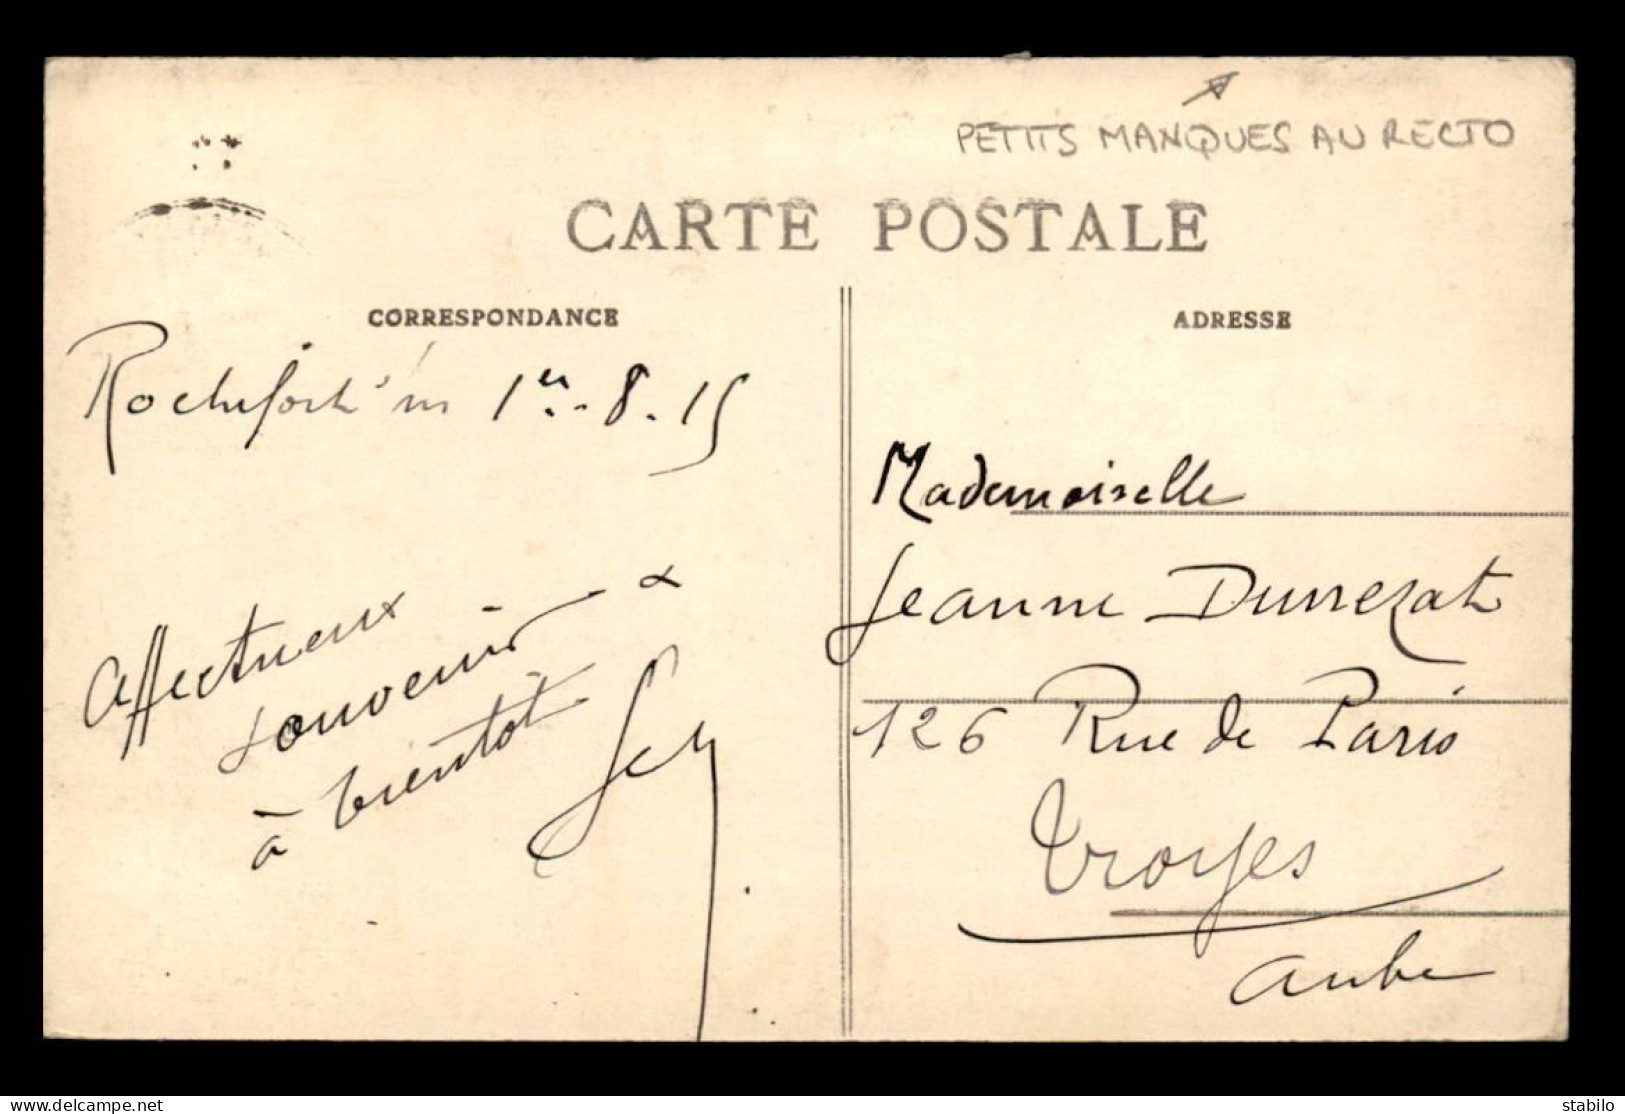 PETITS MANQUES AU RECTO
CARTE POSTALE
CORRESPONDANCE
Rochefort s/m 1er-8.15
Affectueux
souvenir &
à bientôt
ADRESSE
Mademoiselle
Jeanne
126 Rue de Paris
Troyes
Aube
delcampe.net
stabilo